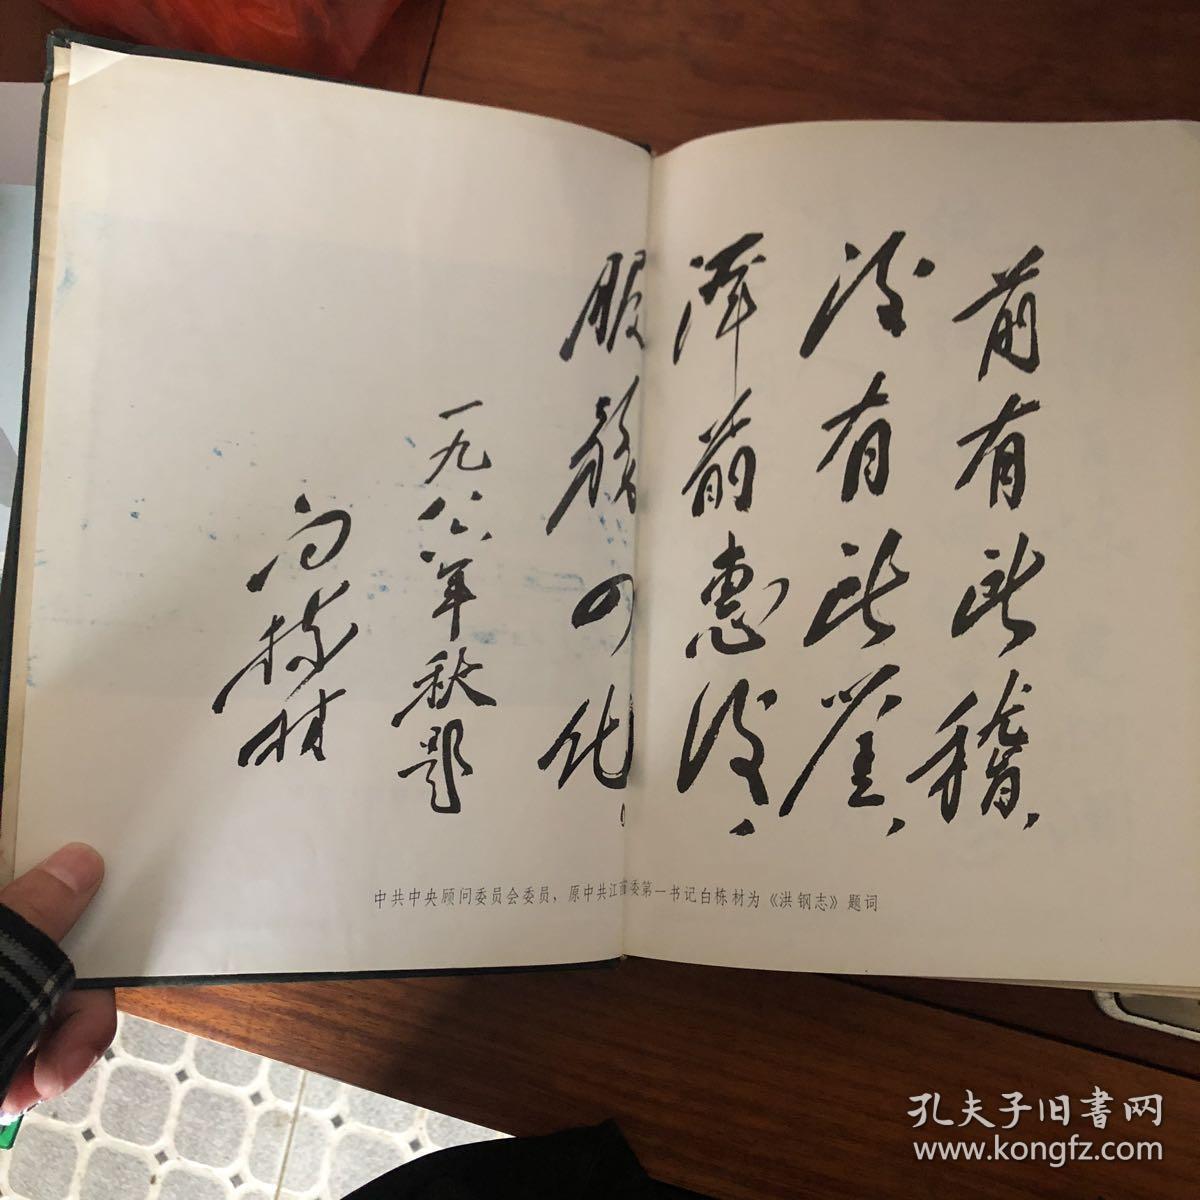 前有所稽、
後有所鉴、
泽前惠後、
服務四化。
一九八六年秋题
白栋材
中共中央顾问委员会委员，原中共江西省委第一书记白栋材为《洪钢志》题词
孔夫子旧書网
www.kongfz.com